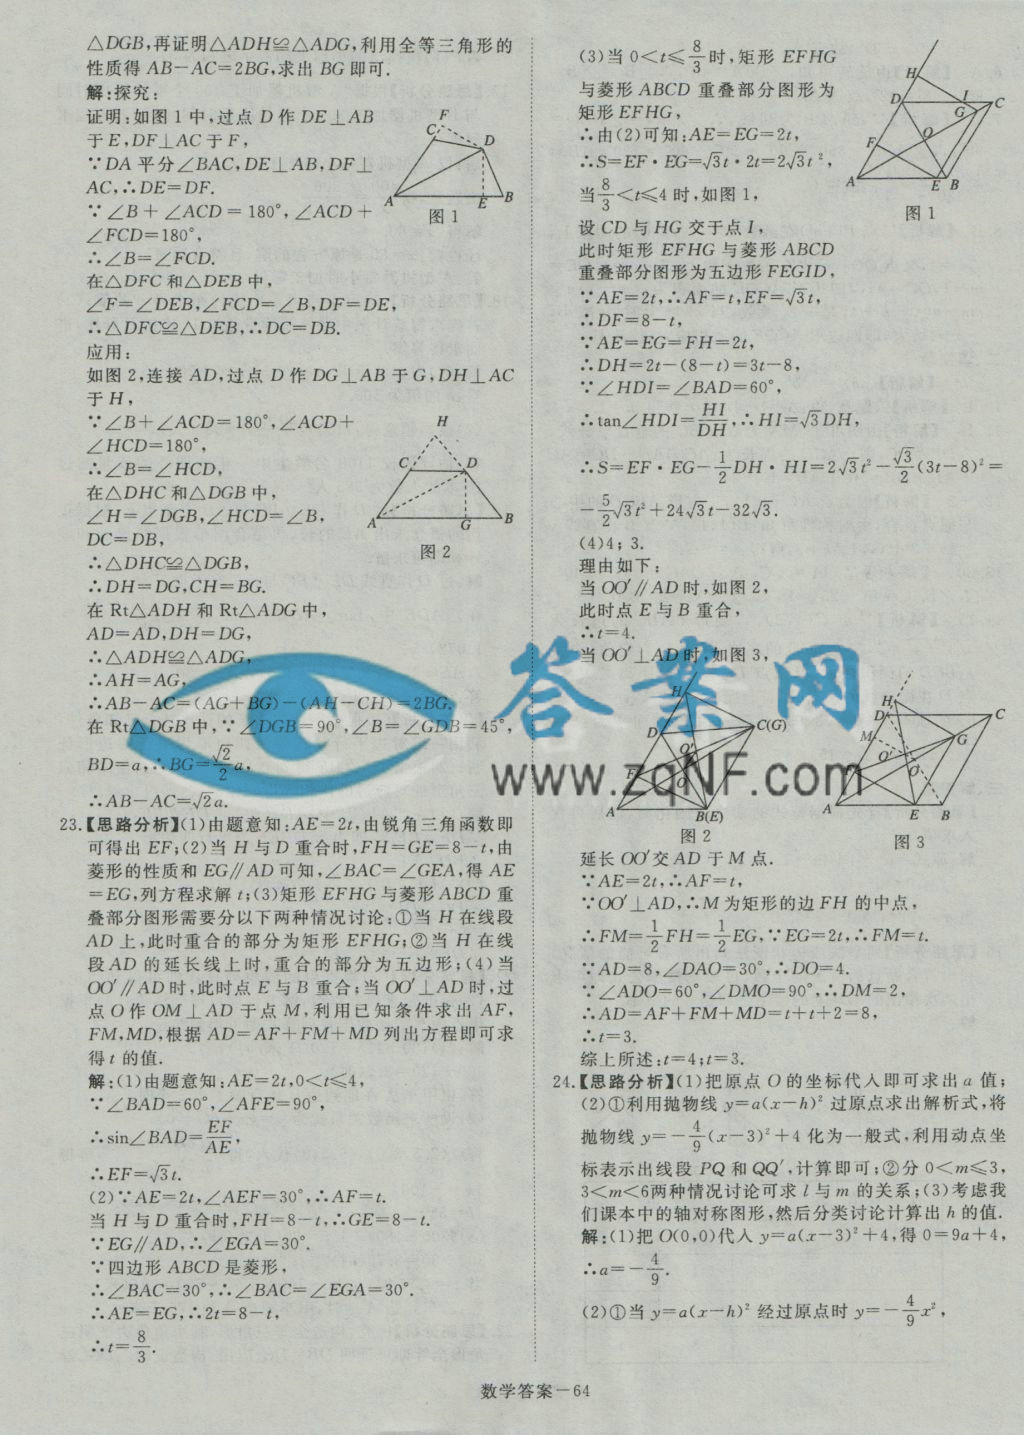 △DGB,再证明△ADH≌△ADG,利用全等三角形的
性质得 AB－AC＝2BG,求出 BG 即可.
解:探究:
证明:如图 1 中,过点 D 作 DE⊥AB
于 E,DF⊥AC 于 F,
∵DA 平分∠BAC,DE⊥AB,DF⊥
AC,∴DE＝DF.
∵∠B＋∠ACD＝180°,∠ACD＋
∠FCD＝180°,
∴∠B＝∠FCD.
在△DFC 和△DEB 中,
∠F＝∠DEB,∠FCD＝∠B,DF＝DE,
∴△DFC≌△DEB,∴DC＝DB.
F
C
D
A
E
B
图 1
应用:
如图 2,连接 AD,过点 D 作 DG⊥AB 于 G,DH⊥AC
于 H,
∵∠B＋∠ACD＝180°,∠ACD＋
∠HCD＝180°,
∴∠B＝∠HCD,
在△DHC 和△DGB 中,
∠H＝∠DGB,∠HCD＝∠B,
DC＝DB,
∴△DHC≌△DGB,
∴DH＝DG,CH＝BG.
H
C
D
A
G
B
图 2
在 Rt△ADH 和 Rt△ADG 中,
AD＝AD,DH＝DG,
∴△ADH≌△ADG,
∴AH＝AG,
∴AB－AC＝(AG＋BG)－(AH－CH)＝2BG,
在 Rt△DGB 中,∵∠DGB＝90°,∠B＝∠GDB＝45°,
BD＝a,∴BG＝√2/2 a,
∴AB－AC＝√2a.
23.【思路分析】(1)由题意知:AE＝2t,由锐角三角函数即
可得出 EF;(2)当 H 与 D 重合时,FH＝GE＝8－t,由
菱形的性质和 EG∥AD 可知,∠BAC＝∠GEA,得 AE
＝EG,列方程求解 t;(3)矩形 EFHG 与菱形 ABCD 重
叠部分图形需要分以下两种情况讨论:①当 H 在线段
AD 上,此时重合的部分为矩形 EFHG;②当 H 在线
段 AD 的延长线上时,重合的部分为五边形;(4)当
OO′∥AD 时,此时点 E 与 B 重合;当 OO′⊥AD 时,过
点 O 作 OM⊥AD 于点 M,利用已知条件求出 AF,
FM,MD,根据 AD＝AF＋FM＋MD 列出方程即可求
得 t 的值.
解:(1)由题意知:AE＝2t,0＜t≤4,
∵∠BAD＝60°,∠AFE＝90°,
∴sin∠BAD＝EF/AE,
∴EF＝√3t.
(2)∵AE＝2t,∠AEF＝30°,∴AF＝t.
当 H 与 D 重合时,FH＝8－t,∴GE＝8－t.
∵EG∥AD,∴∠EGA＝30°.
∵四边形 ABCD 是菱形,
∴∠BAC＝30°,∴∠BAC＝∠EGA＝30°.
∴AE＝EG,∴2t＝8－t,
∴t＝8/3.
(3)当 0＜t≤8/3时,矩形 EFHG
与菱形 ABCD 重叠部分图形为
矩形 EFHG,
∴由(2)可知:AE＝EG＝2t,
∴S＝EF·EG＝√3t·2t＝2√3t²,
当8/3＜t≤4 时,如图 1,
设 CD 与 HG 交于点 I,
此时矩形 EFHG 与菱形 ABCD
重叠部分图形为五边形 FEGID,
∵AE＝2t,∴AF＝t,EF＝√3t,
∴DF＝8－t,
∵AE＝EG＝FH＝2t,
∴DH＝2t－(8－t)＝3t－8,
∵∠HDI＝∠BAD＝60°,
∴tan∠HDI＝HI/DH,∴HI＝√3DH,
H
D
I
G
C
F
O
A
E
B
图 1
∴S＝EF·EG－1/2 DH·HI＝2√3t²－√3/2(3t－8)²＝
－5/2√3t²＋24√3t－32√3.
(4)4; 3.
理由如下:
当 OO′∥AD 时,如图 2,
此时点 E 与 B 重合,
∴t＝4.
当 OO′⊥AD 时,如图 3,
H
D
C(G)
O′
F
O
A
B(E)
图 2
H
D
C
M
G
O′
O
F
A
E
B
图 3
答案网
www.zqNF.com
延长 OO′交 AD 于 M 点.
∵AE＝2t,∴AF＝t,
∵OO′⊥AD,∴M 为矩形的边 FH 的中点,
∴FM＝1/2FH＝1/2EG,∵EG＝2t,∴FM＝t.
∵AD＝8,∠DAO＝30°,∴DO＝4.
∵∠ADO＝60°,∠DMO＝90°,∴DM＝2,
∴AD＝AF＋FM＋MD＝t＋t＋2＝8,
∴t＝3.
综上所述:t＝4;t＝3.
24.【思路分析】(1)把原点 O 的坐标代入即可求出 a 值;
(2)①利用抛物线 y＝a(x－h)² 过原点求出解析式,将
抛物线 y＝－4/9(x－3)²＋4 化为一般式,利用动点坐
标表示出线段 PQ 和 QQ′,计算即可;②分 0＜m≤3,
3＜m＜6两种情况讨论可求 l 与 m 的关系;(3)考虑我
们课本中的轴对称图形,然后分类讨论计算出 h 的值.
解:(1)把 O(0,0)代入 y＝a(x－3)²＋4,得 0＝9a＋4,
∴a＝－4/9.
(2)①当 y＝a(x－h)² 经过原点时 y＝－4/9x²,
数学答案－64